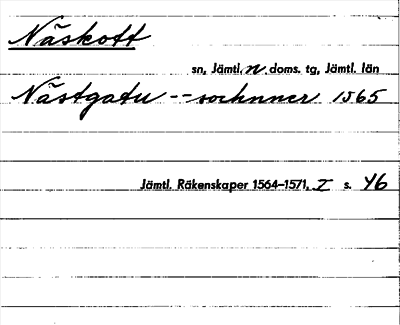 Näskott
sn, Jämtl. n. doms. tg, Jämtl. län
Nästgatu -- sochnner 1565
Jämtl. Räkenskaper 1564–1571, I s. 46